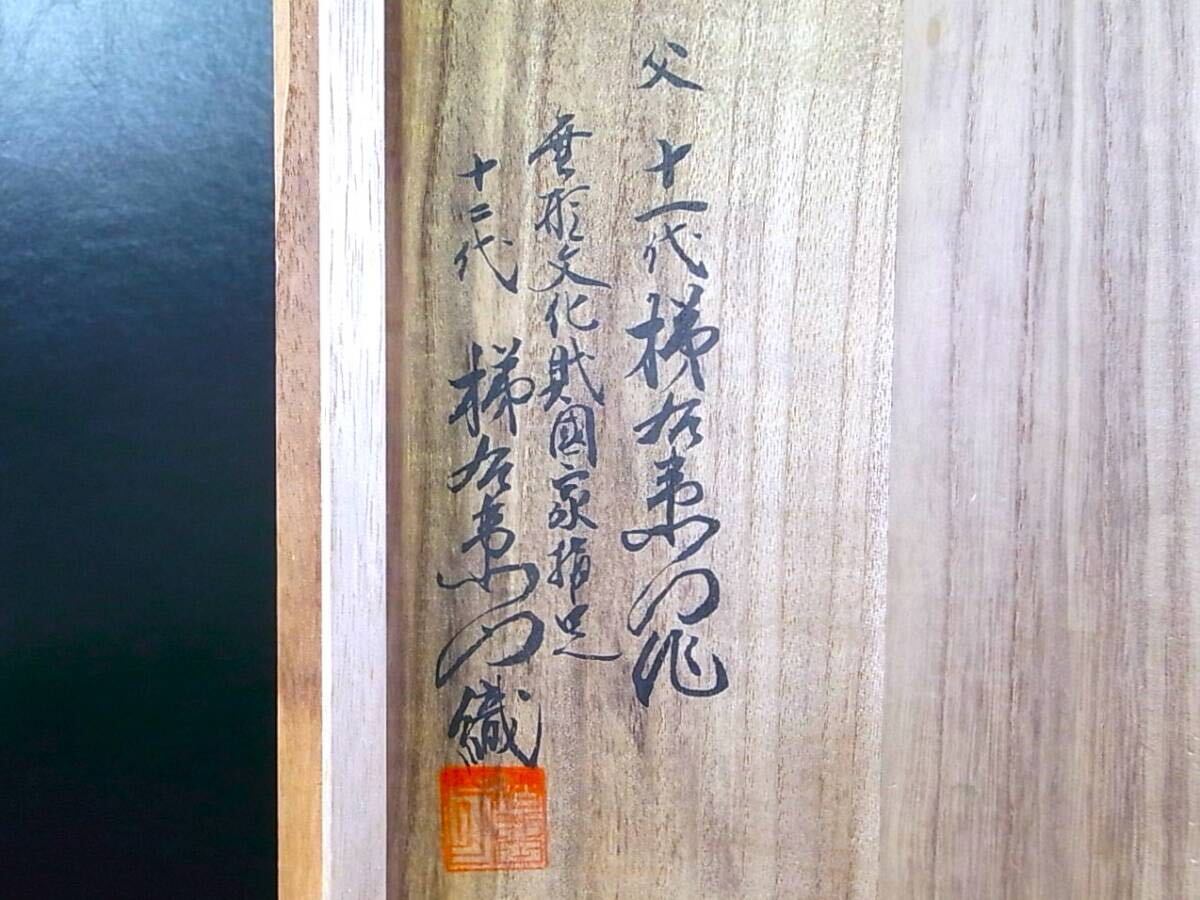 父 十一代 柿右衛門作
無形文化財國家指定
十二代 柿右衛門識